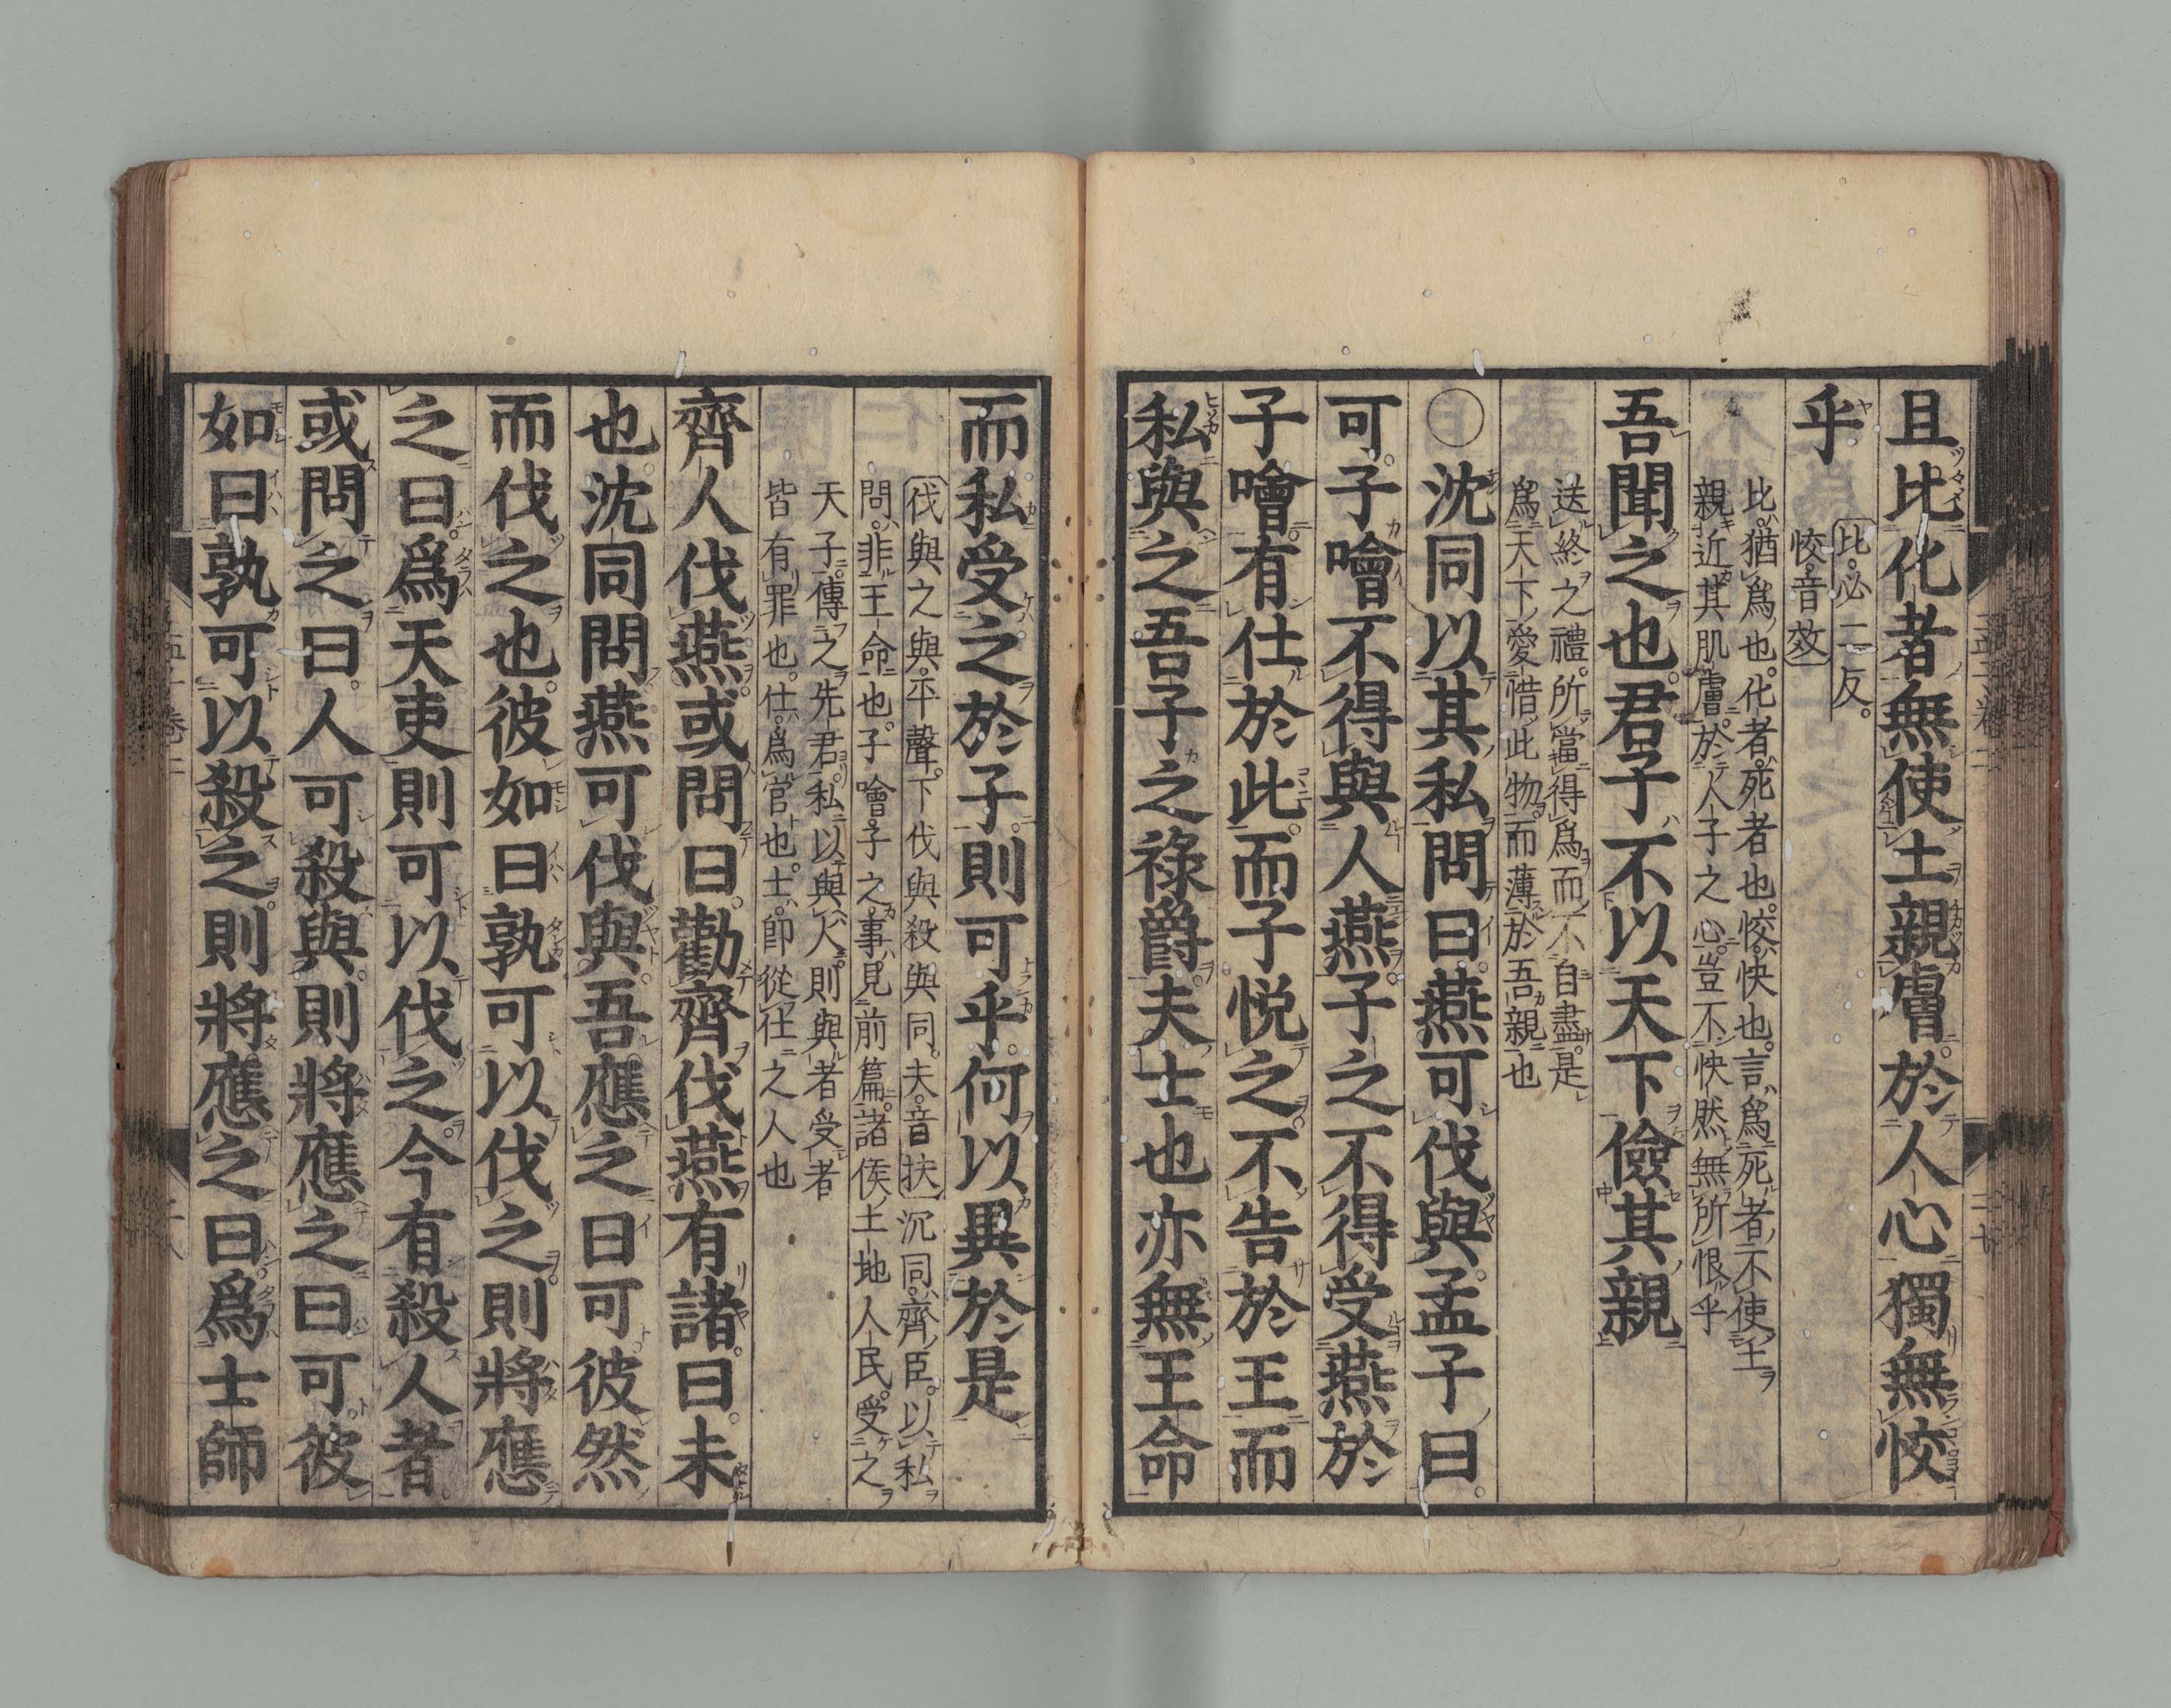 且比化者無使土親膚於人心獨無恔
乎
比必二反。
恔音效
比猶爲也。化者死者也。恔快也。言爲死者不使土
親近其肌膚於人子之心豈不快然無所恨乎
吾聞之也君子不以天下儉其親
送終之禮。所當得爲而不自盡。是
爲天下愛惜此物而薄於吾親也
○沈同以其私問曰燕可伐與孟子曰
可子噲不得與人燕子之不得受燕於
子噲有仕於此而子悦之不告於王而
私與之吾子之祿爵夫士也亦無王命
而私受之於子則可乎何以異於是
伐與之與平聲。下伐與殺與同。夫音扶沉同齊臣。以私
問。非王命也。子噲子之事見前篇。諸侯土地人民。受之
天子。傳之先君。私以與人。則與者受者
皆有罪也。仕。爲官也。士。即從仕之人也
齊人伐燕或問曰勸齊伐燕有諸曰未
也沈同問燕可伐與吾應之曰可彼然
而伐之也彼如曰孰可以伐之則將應
之曰爲天吏則可以伐之今有殺人者
或問之曰人可殺與則將應之曰可彼
如曰孰可以殺之則將應之曰爲士師